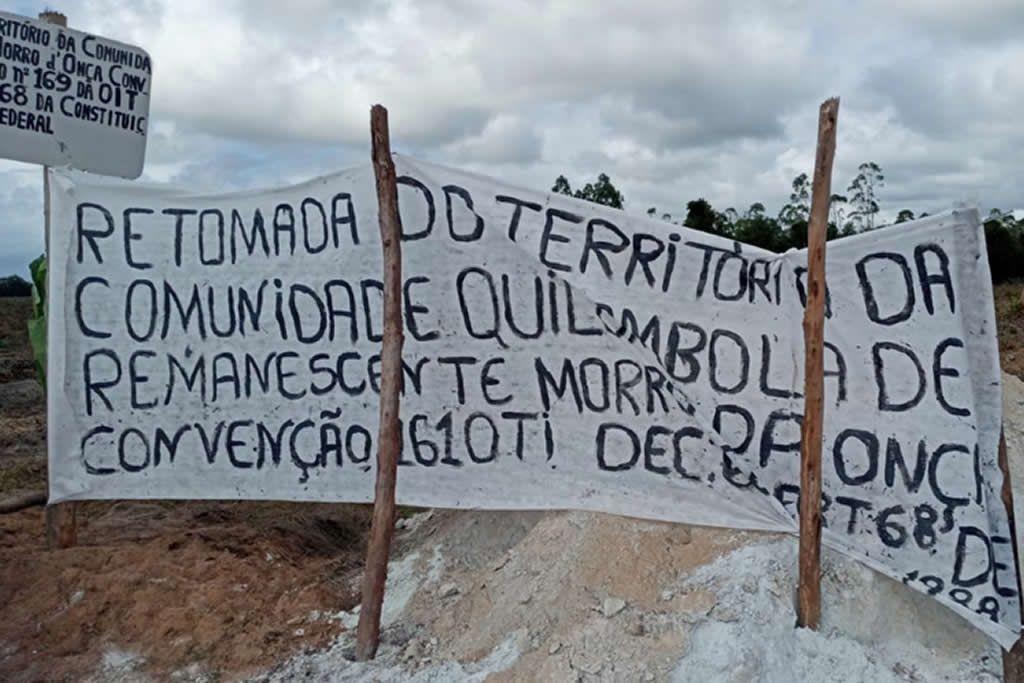 RITÓRIO DA COMUNIDA
MORRO d'ONÇA CONV
O Nº 169 DA OIT
68 DA CONSTITUIÇ
EDERAL
RETOMADA DO TERRITÓRIO DA
COMUNIDADE QUILOMBOLA DE
REMANESCENTE MORRO DA ONÇA
CONVENÇÃO 1610TI DEC. ART 68 DE
1988